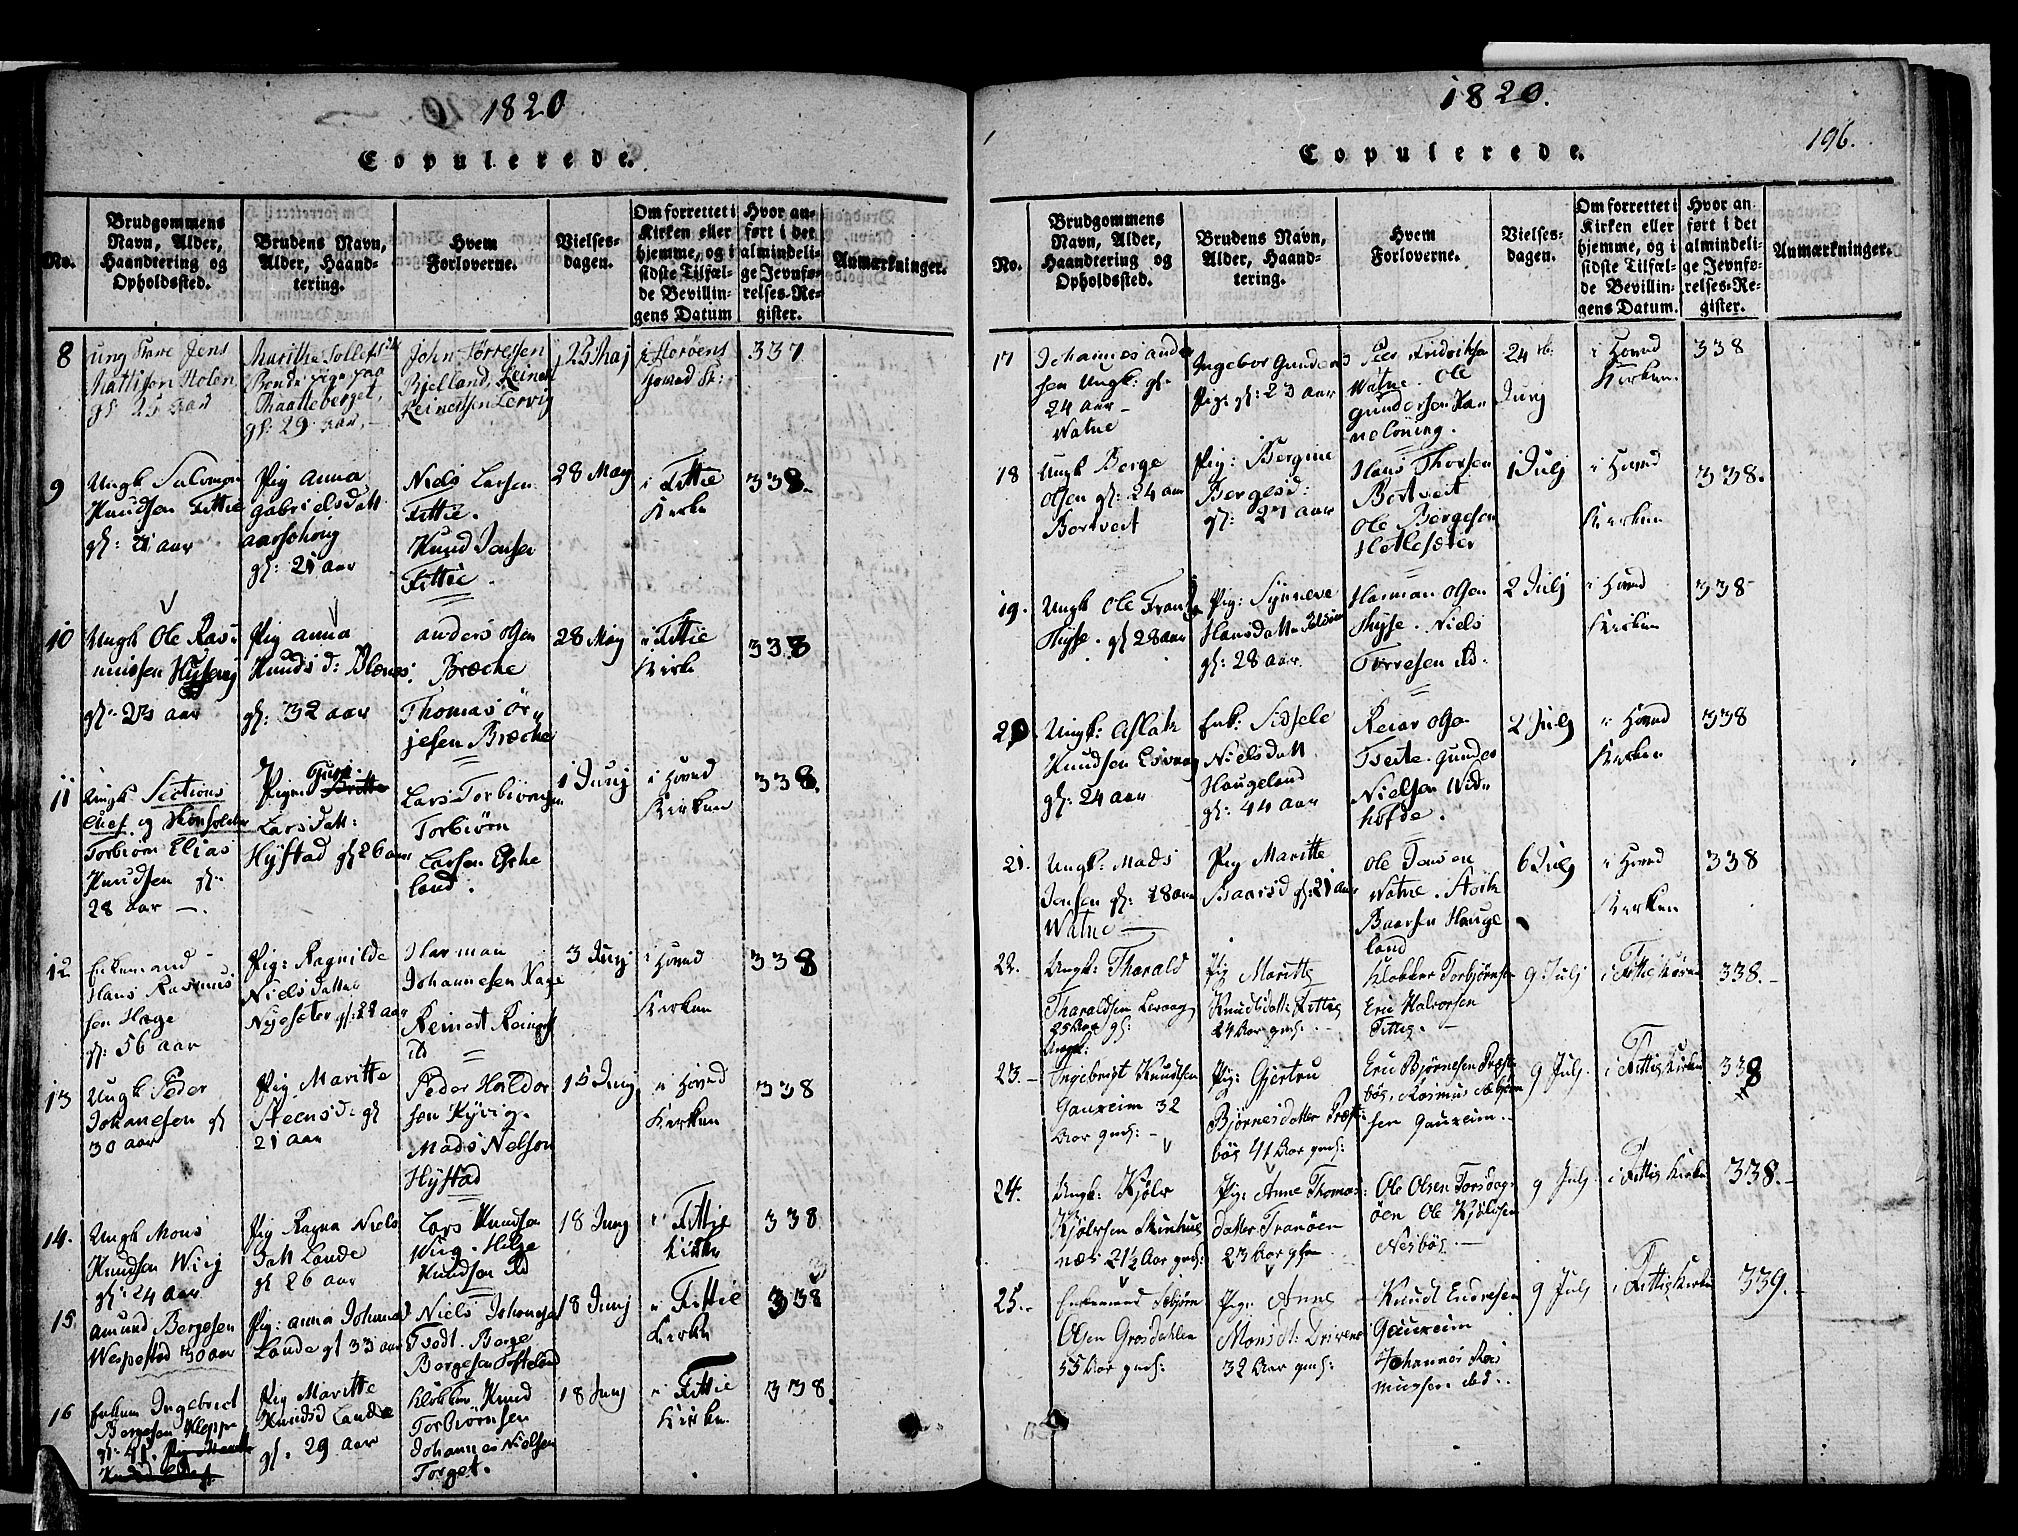 1820
Copulerede.
No.
Brudgommens
Navn, Alder,
Haandtering og
Opholdssted.
Brudens Navn,
Alder, Haand-
tering.
Hvem
Forloverne.
Vielses-
dagen.
Om forrettet i
Kirken eller
hjemme, og i
sidste Tilfæl-
de Bevillin-
gens Datum
Hvor an-
ført i det
almindeli-
ge Jevnfø-
relses-Re-
gister.
Anmærkninger.
8
ung Jens
Mattison Holen
gl: 25 aar
Maritha Tollefsd
Bonde Pige paa
Raatteberget,
gl: 29 aar,
John Tørressen
Bjelland, Reiner
Reinertsen Lervig
25 Maj
337
9
Ungk Salomon
Knudsen Fittie
gl: 21 aar
Pig Anna
Gabrielsdatt
gl: 21 aar
Niels Larsen
Fittie.
Knud Jensen
Fittie.
28 May
i Fittie
Kirke
338.
10
Ungk Ole Ras
mussen
gl: 23 aar
Pig Anna
Knudsd:
gl: 32 aar
anders Olsen
Bræcke
Thomas Ør
jesen Bræcke
28 May
i Fittie
Kirke
338
11
Ungk Sections
Chef og
Torbiørn Elias
Knudsen gl:
28 aar —.
Pige: Guri
Larsdatt:
Hystad gl 26 aar
Lars Torbiørnsen
Torbiørn
Larsen Eske
land.
1 Junj
i Hoved
Kirken
338.
12
Enkemand
Hans Rasmus
sen Hage
gl: 56 aar
Pig: Ragnilde
Nielsdatter
Nysæter gl: 28 aar
Harman
Johannesen Hage
Reinert Reinerts
ib
3 Junj
i Hoved
Kirken
338
13
Ungk Peder
Johanesen gl
30 aar
Pig Maritte
Steensd: gl
21 aar
Peder Haldor
sen Kyvig.
Mads Nelson
Hystad
15 Junj
i Hoved
Kirken
338
14.
Ungk Mons
Knudsen Wiig
gl: 24 aar
Pig Ragna Niels
datt Lande
gl 26 aar
Lars Knudsen
Wiig. Helge
Knudsen ib
18 Junj
i Fittie
Kirke
338
15
Amund Børgesen
Wespestad 30 aar
Pig: anna Johannes
Lande gl 33 aar
Niels Johannes
Tvedt. Børge
Børgesen
18 Junj
i Fittie
Kirke
338
16
Enkem Ingebrict
Børgesen Kleppe
gl: 41.
Pig Maritte
Knudsd Lande
gl. 29 aar
Klokker Knud
Torbiørnsen
Johannes Nielsen
Torget.
18 Junj
i Fittie
Kirken
338
1820.
196.
Copulerede.
No.
Brudgommens
Navn, Alder,
Haandtering og
Opholdssted.
Brudens Navn,
Alder, Haand-
tering.
Hvem
Forloverne.
Vielses-
dagen.
Om forrettet i
Kirken eller
hjemme, og i
sidste Tilfæl-
de Bevillin-
gens Datum.
Hvor an-
ført i det
almindeli-
ge Jevnfø-
relses-Re-
gister.
Anmærkninger.
17
Johannes ander
sen Ungk: gl:
24 aar —
Watne
Ingebor Gunders
Pig: gl: 23 aar
Peer Fridriksen
Watne. Ole
Gundersen
24
Junj
i Hoved
Kirken
338
18
Ungk Børge
Olsen gl: 24 aar
Bortveit
Pig: Bergine
Børgesd:
gl: 27 aar
Hans Thorsen
Bortveit
Ole Børgesen
Hetlesæter
1 Julj
i Hoved
Kirken
338.
19.
Ungk Ole Frantz
Thyse. gl 28 aar
Pig: Synneve
Hansdatter
gl: 28 aar.
Harman Olsen
Thyse. Niels
Torresen ib.
2 Julj
i Hoved
Kirken
338
20
Ungk: Aslak
Knudsen
gl: 24 aar
Enk: Sidsele
Nielsdatt
Haugeland
gl: 44 aar
Reiar Olsen
Tveite. Gunder
Nielsen Wid
hofde.
2 Julj
i Hoved
Kirken
338
21.
Ungk: Mads
Jensen gl: 28 aar
Watne —
Pig Maritte
Baarsd gl: 21 aar
Ole Jensen
Watne. Aslak
Baarsen Hauge
land
6 Julj
i Hoved
Kirken
338
22.
Ungk: Tharald
Tharaldsen
25 Aar gl:
Pig Maritte
Knudsdatt: Fittie
24 Aar gml:
Klokker Torbjørnsen
Eric Halvorsen
Fittie. —
9 Julj
i Fittie Kirke
338.—
23.
Ungk:
Ingebrigt Knudsen
Gauxeim 32
Aar gml: —
Pig: Gjertru
Bjørnesdatter Præst
bøe 41 Aar gml:
Eric Bjørnesen Præste
bøe, Rasmus Asbjørn
sen Gauxeim.—
9 Julj
i Fittie Kirke
338
24.
Ungk: Kjølv
Kjølvsen
næs 21½ Aar gml:
Pig: Anne Thomas
datter Tranøen
23 Aar gl
Ole Olsen Torsdag
øen Ole Kjølvsen
Nesbøe. —
9 Julj
i Fittie Kirke
338.—
25.
Enkemand Asbjørn
Olsen Grosdahlen
55 Aar gml:
Pig: Anne
Monsdt: Drivenes
32 Aar gml:
Knudt Endresen
Gauxeim
Johannes Ras
mussen ibd:
9 Julj
i Fittie Kirke
339.